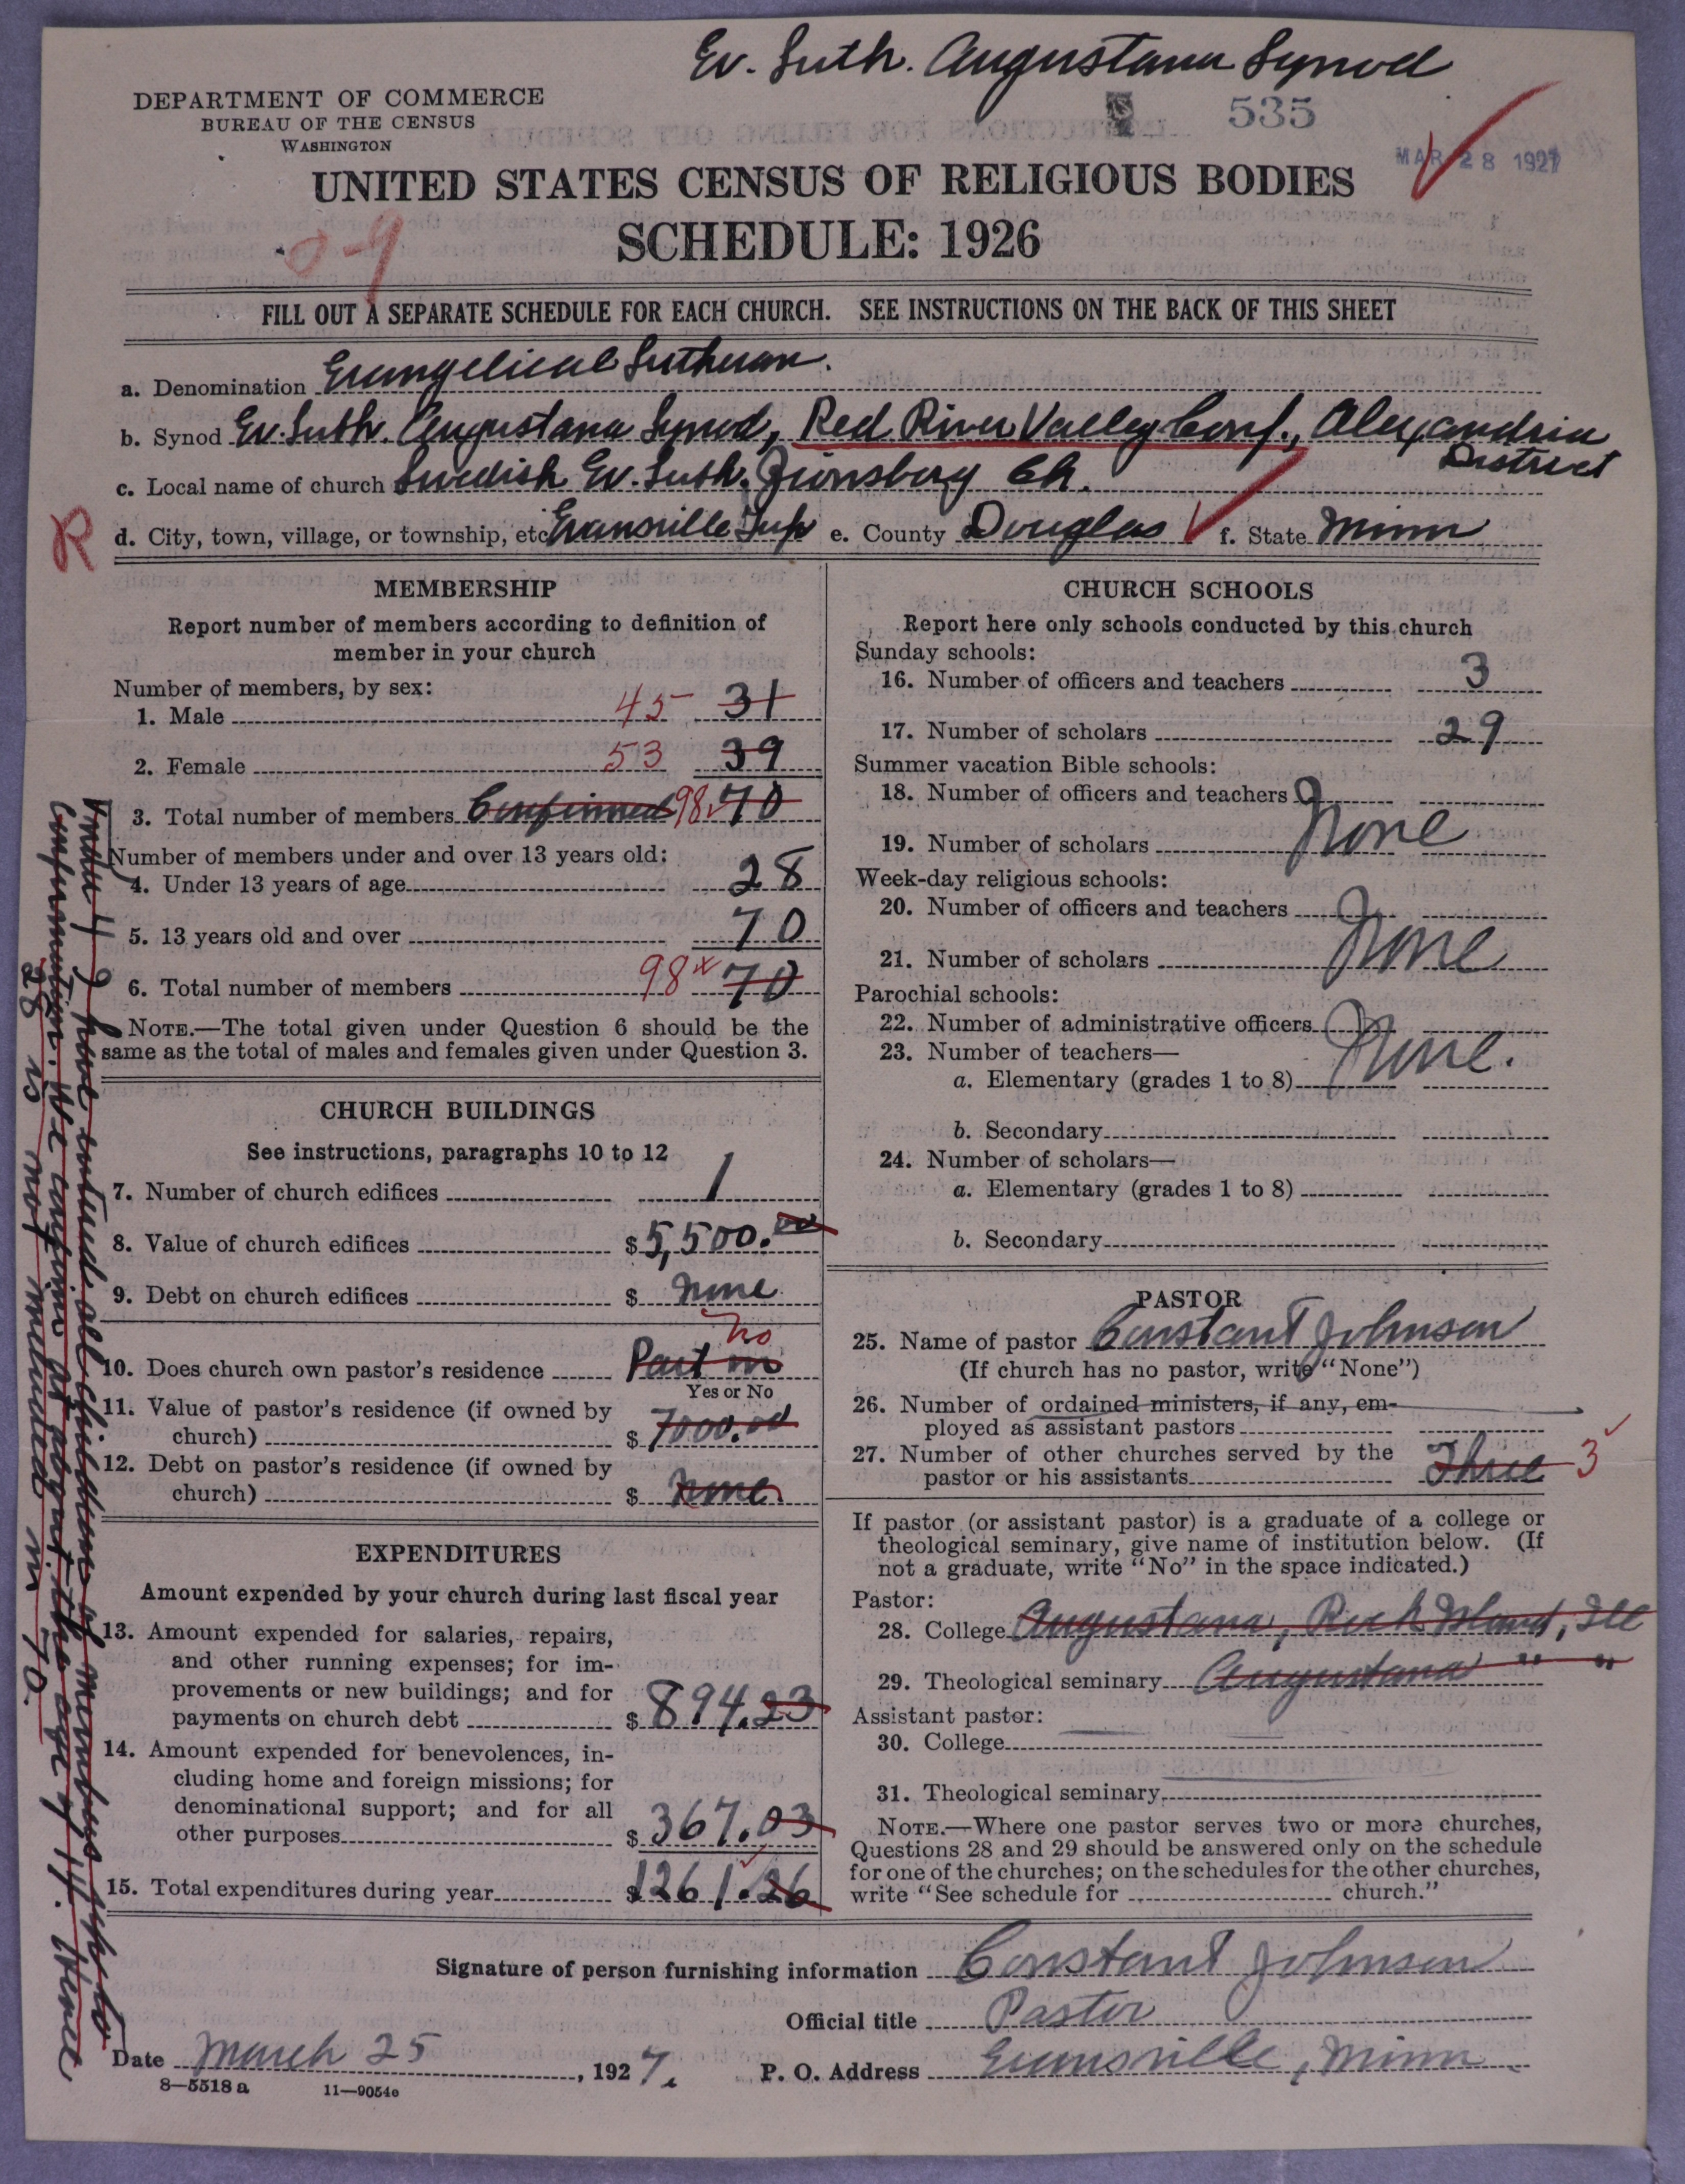 Ev. Luth. Augustana Synod
DEPARTMENT OF COMMERCE
BUREAU OF THE CENSUS
WASHINGTON
535
MAR 28 1927
UNITED STATES CENSUS OF RELIGIOUS BODIES
SCHEDULE: 1926
0-9
FILL OUT A SEPARATE SCHEDULE FOR EACH CHURCH. SEE INSTRUCTIONS ON THE BACK OF THIS SHEET
a. Denomination Evangelical Lutheran.
b. Synod Ev. Luth. Augustana Synod, Red River Valley Conf., Alexandria District
c. Local name of church Swedish Ev. Luth. Zionsborg Ch.
R
d. City, town, village, or township, etc Evansville Twp e. County Douglas f. State Minn
MEMBERSHIP
Report number of members according to definition of
member in your church
Number of members, by sex:
1. Male 45 31
2. Female 53 39
3. Total number of members Confirmed 98 70
Number of members under and over 13 years old:
4. Under 13 years of age 28
5. 13 years old and over 70
6. Total number of members 98 70
NOTE.—The total given under Question 6 should be the
same as the total of males and females given under Question 3.
CHURCH BUILDINGS
See instructions, paragraphs 10 to 12
7. Number of church edifices 1
8. Value of church edifices $ 5,500.00
9. Debt on church edifices $ None
No
10. Does church own pastor's residence Part in
Yes or No
11. Value of pastor's residence (if owned by
church) $ 7000.00
12. Debt on pastor's residence (if owned by
church) $ None
EXPENDITURES
Amount expended by your church during last fiscal year
13. Amount expended for salaries, repairs,
and other running expenses; for im-
provements or new buildings; and for
payments on church debt $ 894.23
14. Amount expended for benevolences, in-
cluding home and foreign missions; for
denominational support; and for all
other purposes $ 367.03
15. Total expenditures during year $ 1261.26
Under 4 I have entered all children of members up to
confirmation. We confirm at about the age of 14. Hence
28 is not included in 70.
CHURCH SCHOOLS
Report here only schools conducted by this church
Sunday schools:
16. Number of officers and teachers 3
17. Number of scholars 29
Summer vacation Bible schools:
18. Number of officers and teachers
19. Number of scholars None
Week-day religious schools:
20. Number of officers and teachers
21. Number of scholars None
Parochial schools:
22. Number of administrative officers
23. Number of teachers— None.
a. Elementary (grades 1 to 8)
b. Secondary
24. Number of scholars—
a. Elementary (grades 1 to 8)
b. Secondary
PASTOR
25. Name of pastor Constant Johnson
(If church has no pastor, write "None")
26. Number of ordained ministers, if any, em-
ployed as assistant pastors
27. Number of other churches served by the
pastor or his assistants Three 3
If pastor (or assistant pastor) is a graduate of a college or
theological seminary, give name of institution below. (If
not a graduate, write "No" in the space indicated.)
Pastor:
28. College Augustana, Rock Island, Ill
29. Theological seminary Augustana " "
Assistant pastor:
30. College
31. Theological seminary
NOTE.—Where one pastor serves two or more churches,
Questions 28 and 29 should be answered only on the schedule
for one of the churches; on the schedules for the other churches,
write "See schedule for church."
Signature of person furnishing information Constant Johnson
Official title Pastor
Date March 25, 1927. P. O. Address Evansville, Minn
8—5518 a 11—9054e